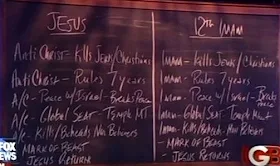 JESUS
AntiChrist - Kills Jews/Christians
AntiChrist - Rules 7 years
A/C - Peace w/ Israel - Breaks Peace
A/C - Global Seat - Temple MT
A/C - Kills/Beheads Non Believers
- MARK OF BEAST
- JESUS RETURNS
12th IMAM
Imam - Kills Jews/Christians
Imam - Rules 7 years
Imam - Peace w/ Israel - Breaks
Imam - Global Seat - Temple Mount
Imam - Kills/Beheads Non Believers
- MARK OF BEAST
- JESUS RETURNS
FOX
NEWS
G